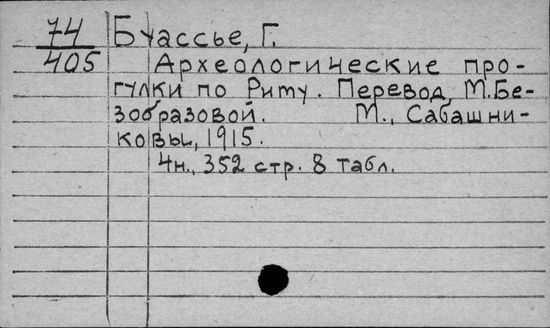 74 Буассье, Г.
405 Археологические про-
гулки по Риму. Перевод М.Бе-
зобразовой. М., Сабашни-
ковы, 1915.
4н., 352 стр. 8 табл.